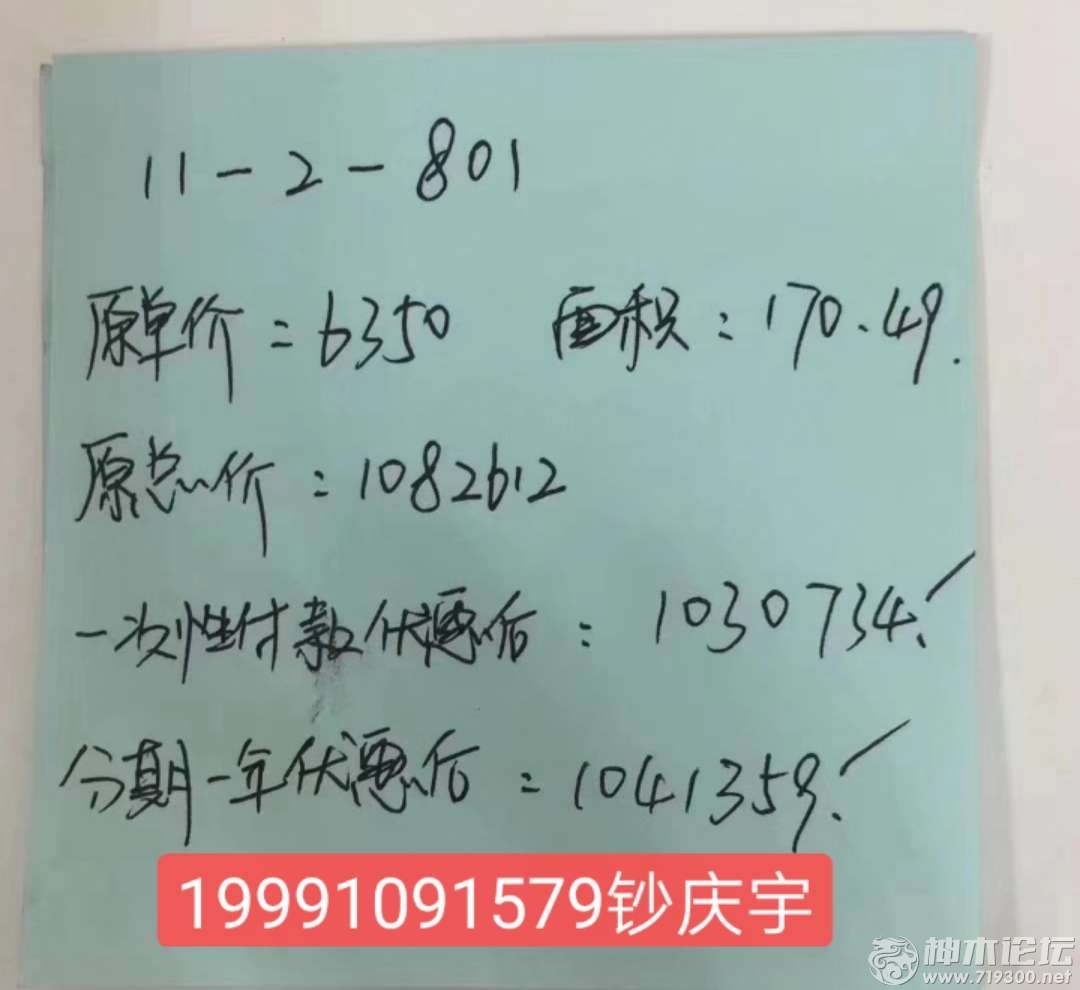 11-2-801
原单价：6350 面积：170.49.
原总价：1082612
一次性付款优惠后：1030734.✓
分期一年优惠后：1041359.✓
19991091579钞庆宇
神木论坛
www.719300.net